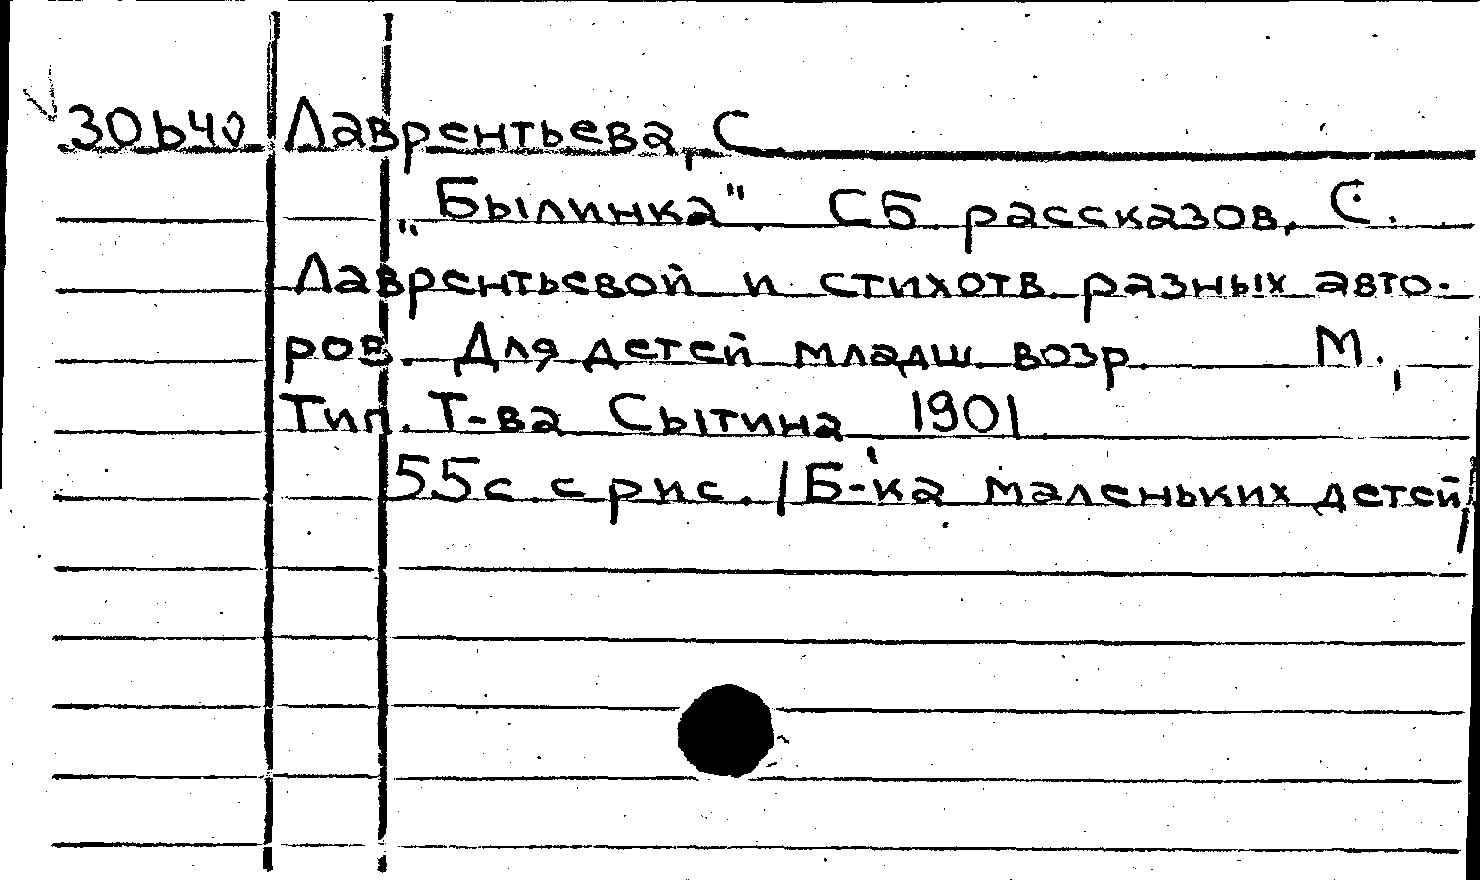 Лаврентьева, С
„Былинка". Сб. рассказов, С.
Лаврентьевой и стихотв. разных авто-
ров. Для детей младш. возр. М.,
Тип. Т-ва Сытина 1901
55 с. с рис. /Б-ка маленьких детей/